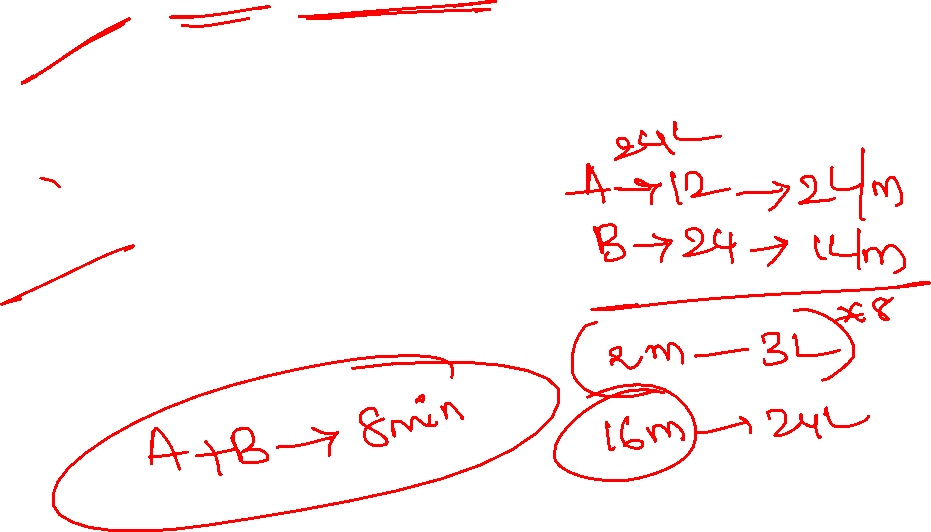 24L
A → 12 → 2L/m
B → 24 → 1L/m
(2m — 3L) * 8
16m → 24L
A + B → 8min